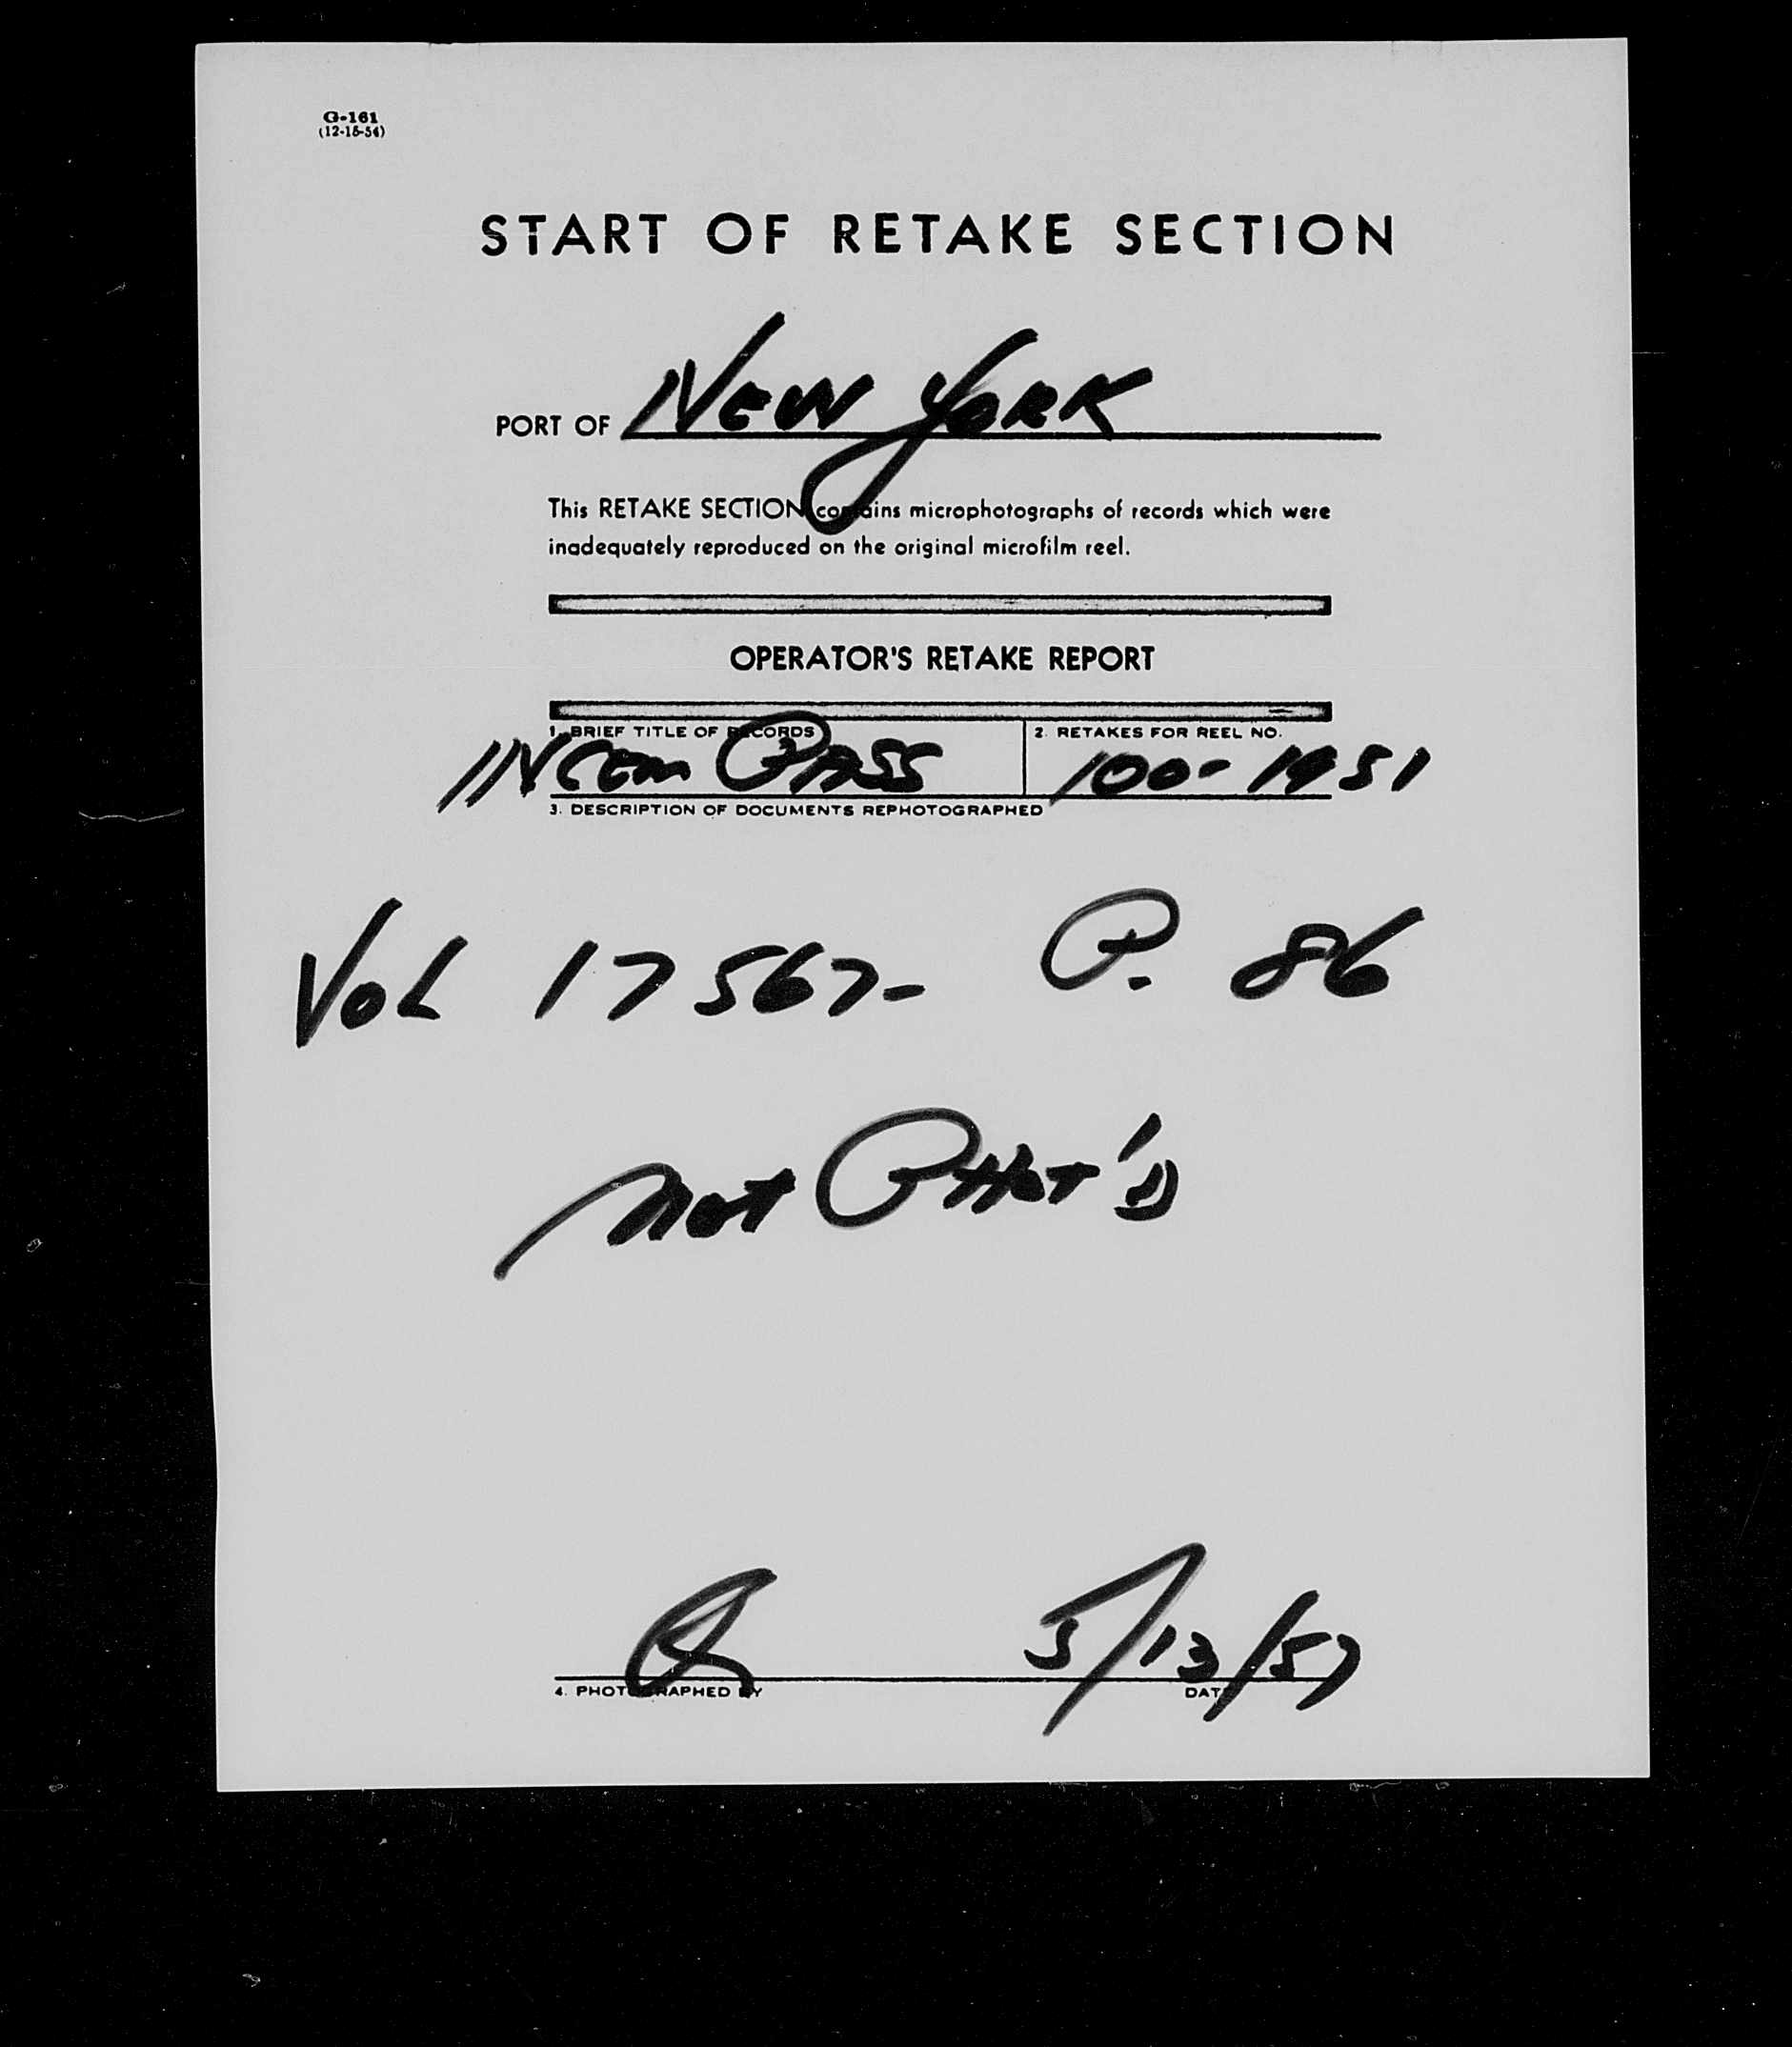 G-161
(12-15-54)
START OF RETAKE SECTION
PORT OF NEW YORK
This RETAKE SECTION contains microphotographs of records which were
inadequately reproduced on the original microfilm reel.
OPERATOR'S RETAKE REPORT
1. BRIEF TITLE OF RECORDS 2. RETAKES FOR REEL NO.
INCOM PASS 100-1951
3. DESCRIPTION OF DOCUMENTS REPHOTOGRAPHED
VOL 17567- P. 86
NOT PHOT'D
5/13/57
4. PHOTOGRAPHED BY DATE